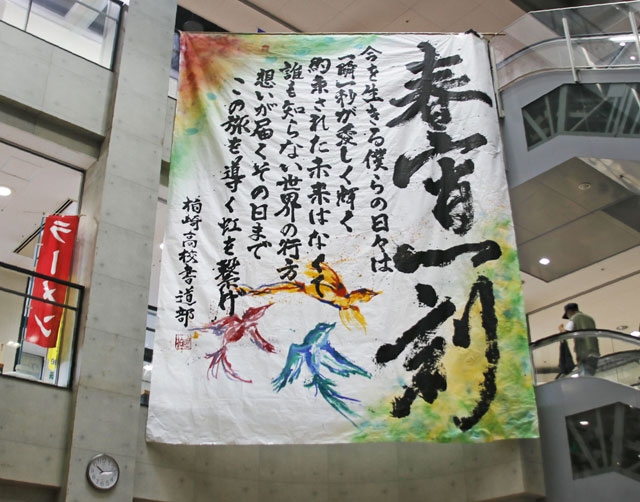 春宵一刻
今を生きる僕らの日々は
一瞬一秒が愛しく輝く
約束された未来はなくて
誰も知らない世界の行方
想いが届くその日まで
この旅を導く虹を繋げ
柏崎高校書道部
ラーメン